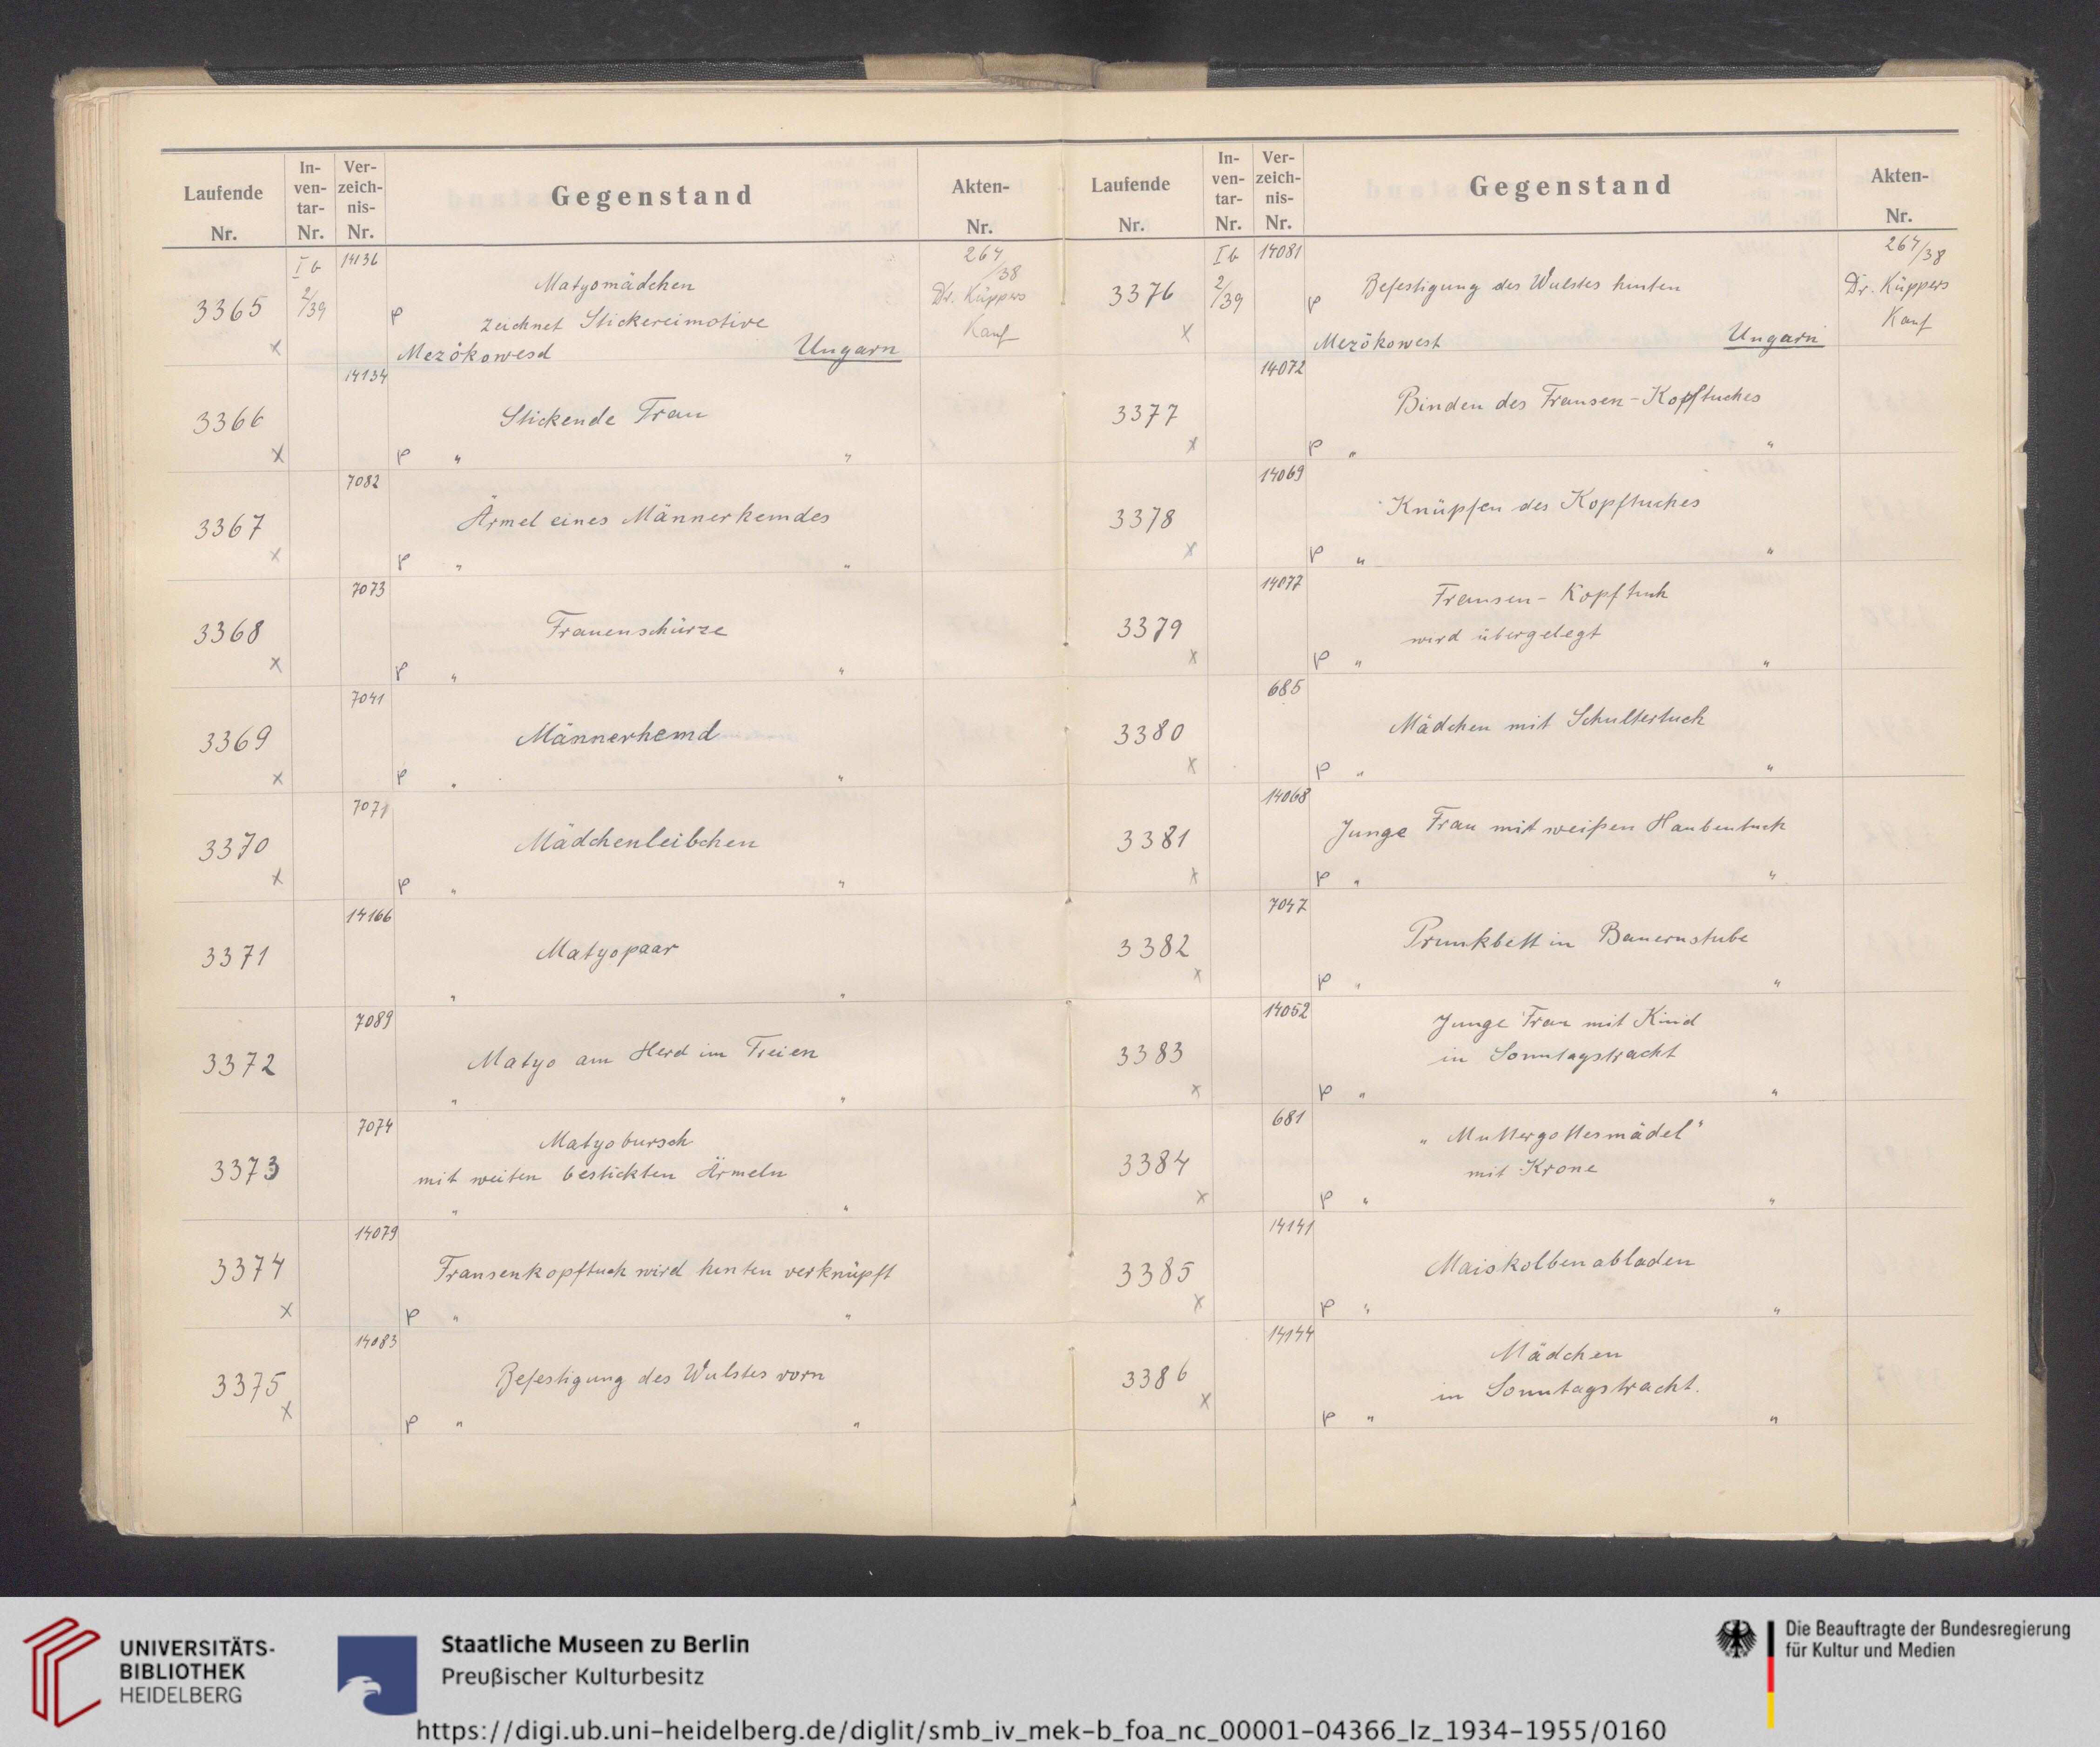 Laufende Nr.
In-ven-tar-Nr.
Ver-zeich-nis-Nr.
Gegenstand
Akten-Nr.
3365 x
I b 2/39
14136
Matyomädchen
p zeichnet Stickereimotive
Mezőkowesd Ungarn
264/38
Dr. Küppers
Kauf
3366 x
14134
Stickende Frau
p " "
3367 x
7082
Ärmel eines Männerhemdes
p " "
3368 x
7073
Frauenschürze
p " "
3369 x
7041
Männerhemd
p " "
3370 x
7071
Mädchenleibchen
p " "
3371
14166
Matyopaar
" "
3372
7089
Matyo am Herd im Freien
" "
3373
7074
Matyobursch
mit weiten bestickten Ärmeln
" "
3374 x
14079
Fransenkopftuch wird hinten verknüpft
p " "
3375 x
14083
Befestigung des Wulstes vorn
p " "
Laufende Nr.
In-ven-tar-Nr.
Ver-zeich-nis-Nr.
Gegenstand
Akten-Nr.
3376 x
I b 2/39
14081
p Befestigung des Wulstes hinten
Mezőkowest Ungarn
264/38
Dr. Küppers
Kauf
3377 x
14072
Binden des Fransen-Kopftuches
p " "
3378 x
14069
Knüpfen des Kopftuches
p " "
3379 x
14077
Fransen-Kopftuch
wird übergelegt
p " "
3380 x
685
Mädchen mit Schultertuch
p " "
3381 x
14068
Junge Frau mit weißen Haubentuch
p " "
3382 x
7047
Prunkbett in Bauernstube
p " "
3383 x
14052
Junge Frau mit Kind
in Sonntagstracht
p " "
3384 x
681
„Muttergottesmädel"
mit Krone
p " "
3385 x
14141
Maiskolbenabladen
p " "
3386 x
14144
Mädchen
in Sonntagstracht.
p " "
UNIVERSITÄTS-
BIBLIOTHEK
HEIDELBERG
Staatliche Museen zu Berlin
Preußischer Kulturbesitz
Die Beauftragte der Bundesregierung
für Kultur und Medien
https://digi.ub.uni-heidelberg.de/diglit/smb_iv_mek-b_foa_nc_00001-04366_lz_1934-1955/0160